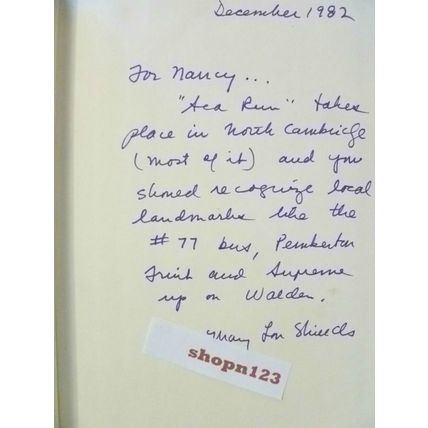 December 1982
For Nancy...
"Sea Run" takes
place in North Cambridge
(most of it) and you
should recognize local
landmarks like the
# 77 bus, Pemberton
Fruit and Supreme
up on Walden.
Mary Lou Shields
shopn123